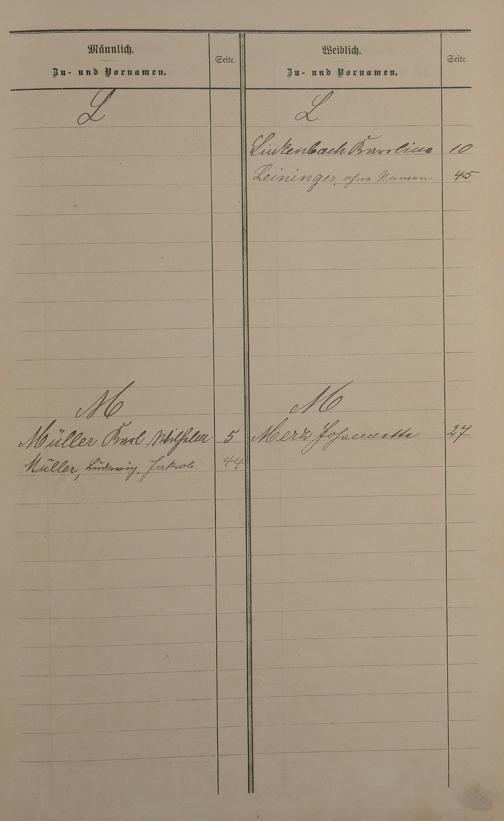 Männlich.
Zu- und Vornamen.
Seite.
L
M
Müller Karl Wilhelm 5
Müller, Ludwig Jakob 44
Weiblich.
Zu- und Vornamen.
Seite.
L
Linkenbach Karolina 10
Leininger, ohne Namen 45
M
Merz Johannette 27